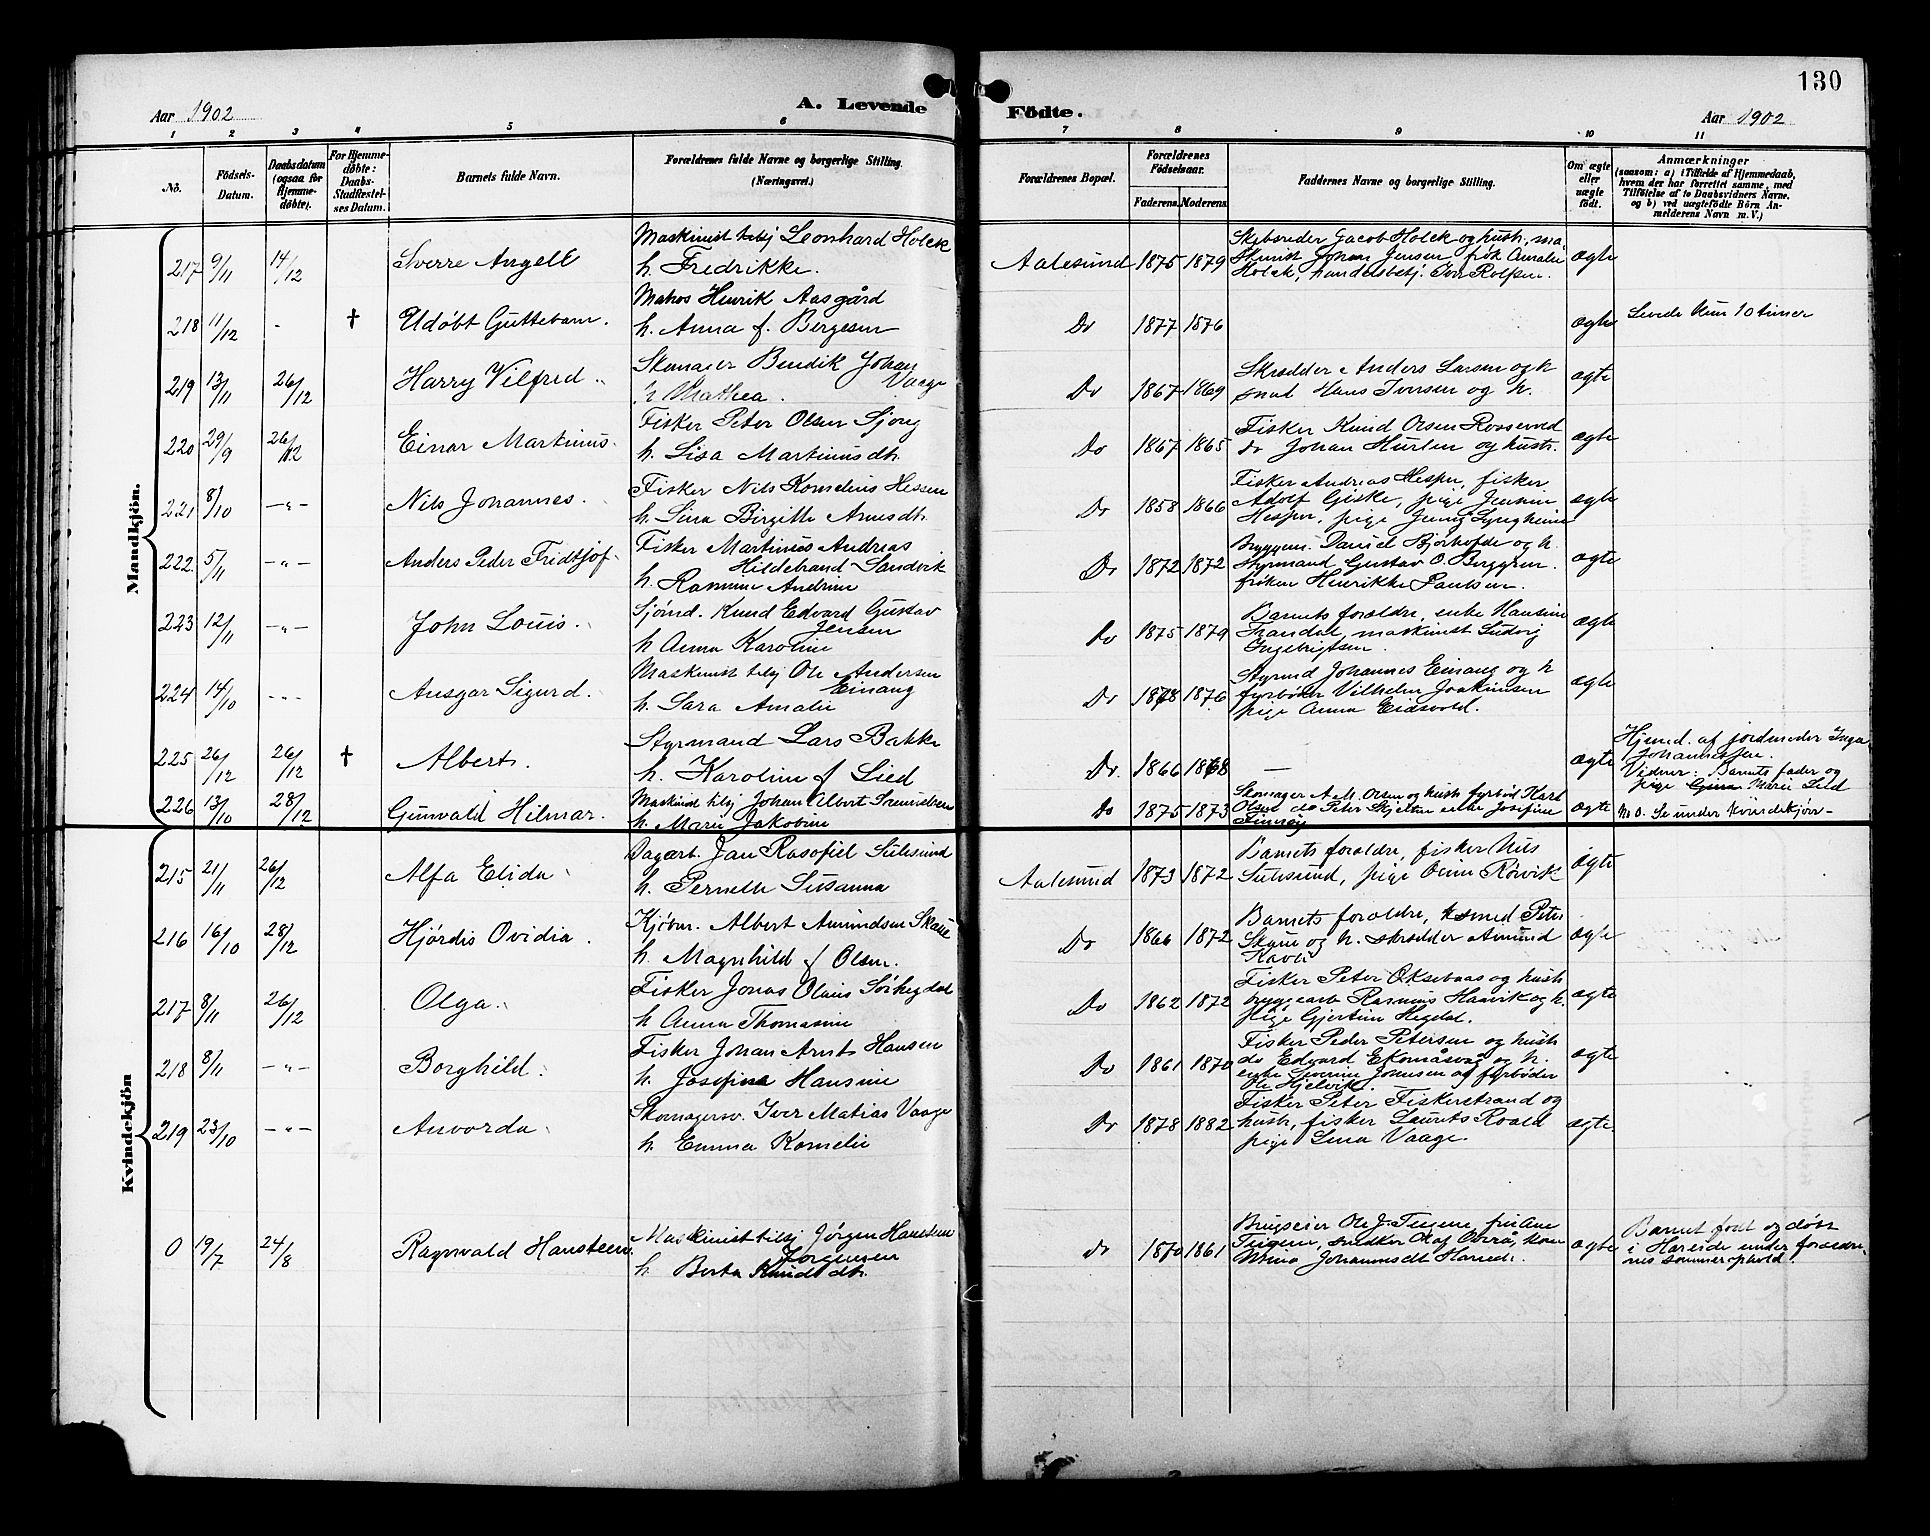 130
Aar 1902
A. Levende
Födte.
Aar 1902
1 2 3 4 5 6 7 8 9 10 11
No.
Födsels-
Datum.
Daabsdatum
(ogsaa for
Hjemme-
døbte).
For Hjemme-
døbte:
Daabs-
Stadfæstel-
ses Datum.
Barnets fulde Navn.
Forældrenes fulde Navne og borgerlige Stilling.
(Næringsvei.)
Forældrenes Bopæl.
Forældrenes
Födselsaar.
Faderens. Moderens.
Faddernes Navne og borgerlige Stilling.
Om ægte
eller
uægte
født.
Anmærkninger
(saasom: a) i Tilfælde af Hjemmedaab,
hvem der har forrettet samme, med
Tilføielse af to Daabsvidners Navne.
og b) ved uægtefödte Börn An-
melderens Navn m. V.)
Mandkjön.
217 9/11 14/12 Sverre Angell
Maskinist tilsj Leonhard Holck
h. Fredrikke.
Aalesund 1875 1879
Skibsreder Jacob Holck og hustr, ma-
skinist Johan Jensen, frøk Amalie
Holck, handelsbetj. Iver Rolfsen.
ægte
218 11/12 - † Udøbt Guttebarn.
Matros Henrik Aasgård
h. Anna f. Bergesen
Do 1877 1876
ægte
Levede kun 10 timer
219 13/11 26/12 Harry Vilfred
Skomager Bendik Johan
Vaage
h. Mathea.
Do 1867 1869
Skrædder Anders Larsen og h
Hans Iversen og h.
ægte
220 29/9 26/12 Einar Martinus
Fisker Peter Olsen
h. Lisa Martinusdtr.
Do 1867 1865
Fisker Knud Olsen
do Johan Hurlen og hustr.
ægte
221 8/10 -"- Nils Johannes.
Fisker Nils Kornelius Hessen
h. Lina Birgitte Arnesdtr.
Do 1858 1866
Fisker Andreas Hessen, fisker
Adolf Giske, pige Jensine
Hessen, pige Jenny
ægte
222 5/11 -"- Anders Peder Fridtjof
Fisker Martinus Andreas
Hildebrand Sandvik
h. Rasmine Andrine
Do 1872 1872
Bryggem. Daniel Bjørkofde og h.
styrmand Gustav O.
frøken Henrikke Paulsen.
ægte
223 12/11 -"- John Louis.
Sjömd. Knud Edvard Gustav
Jensen
h Anna Karoline
Do 1875 1879
Barnets forældre, enke Hansine
Trandal, maskinist Ludvig
Ingebrigtsen.
ægte
224 14/10 -"- Ansgar Sigurd.
Maskinist tilsj Ole Andersen
Einang
h. Sara Amalie
Do 1878 1876
Styrmd Johannes Einang og h
fyrbøder Vilhelm Joakimsen
pige Anna Eidsvold.
ægte
225 26/12 26/12 † Albert.
Styrmand Lars Bakke
h. Karoline f Lied
Do. 1866 1868
—
ægte
Hjemd. af jordmoder Inga
Johannessen.
Vidner: Barnets fader og
pige Marie Lied
226 13/10 28/12 Gunvald Hilmar.
Maskinist tilsj Johan Albert
h. Marie Jakobine
Do 1875 1873
Skomager A. M. Olsen og hustr fyrbød Karl
Olsen do Peter enke Josefine
ægte
No 0. Se under Kvindekjön-
Kvindekjön
215 21/11 26/12 Alfa Elida
Dagarb. Jan Rasofiel Sulesund
h. Pernille Susanna
Aalesund 1873 1872
Barnets forældre, fisker Nils
Sulesund, pige Oline Rövik
ægte
216 16/10 28/12 Hjördis Ovidia.
Kjöbm. Albert Amundsen
h. Magnhild f Olsen.
Do 1866 1872
Barnets forældre, smed Peter
og h. skrædder Amund
ægte
217 8/11 26/12 Olga
Fisker Jonas Olaus
h Anna Thomasine
Do 1862 1872
Fisker Peter Oksebaas og hustr
bryggearb Rasmus Haavik og h.
pige Gjertine Hegdal.
ægte
218 8/11 -"- Borghild.
Fisker Johan Arnt Hansen
h. Josefine Hansine
Do 1861 1870
Fisker Peder Petersen og hustr
do Edvard og h.
enke Severine Jonnesen og fyrbøder
Ole Hjelvik.
ægte
219 23/10 -"- Anvorda
Skomagersv. Iver Matias Vaage
h. Emma Kornelie
Do 1878 1882
Fisker Peter Fiskerstrand og
hustr, fisker Laurits Roald
pige Lina Vaage.
ægte.
0 19/7 24/8 Ragnvald Hansteen
Maskinist tilsj Jørgen Hansteen
Jørgensen
h Berta Knudsdtr.
do 1870 1861
Brugseier Ole J. fru Ane
snedker Olaf kone
Johannesdt
ægte
Barnet født og døbt
i Hareide under forældre-
nes sommerophold.